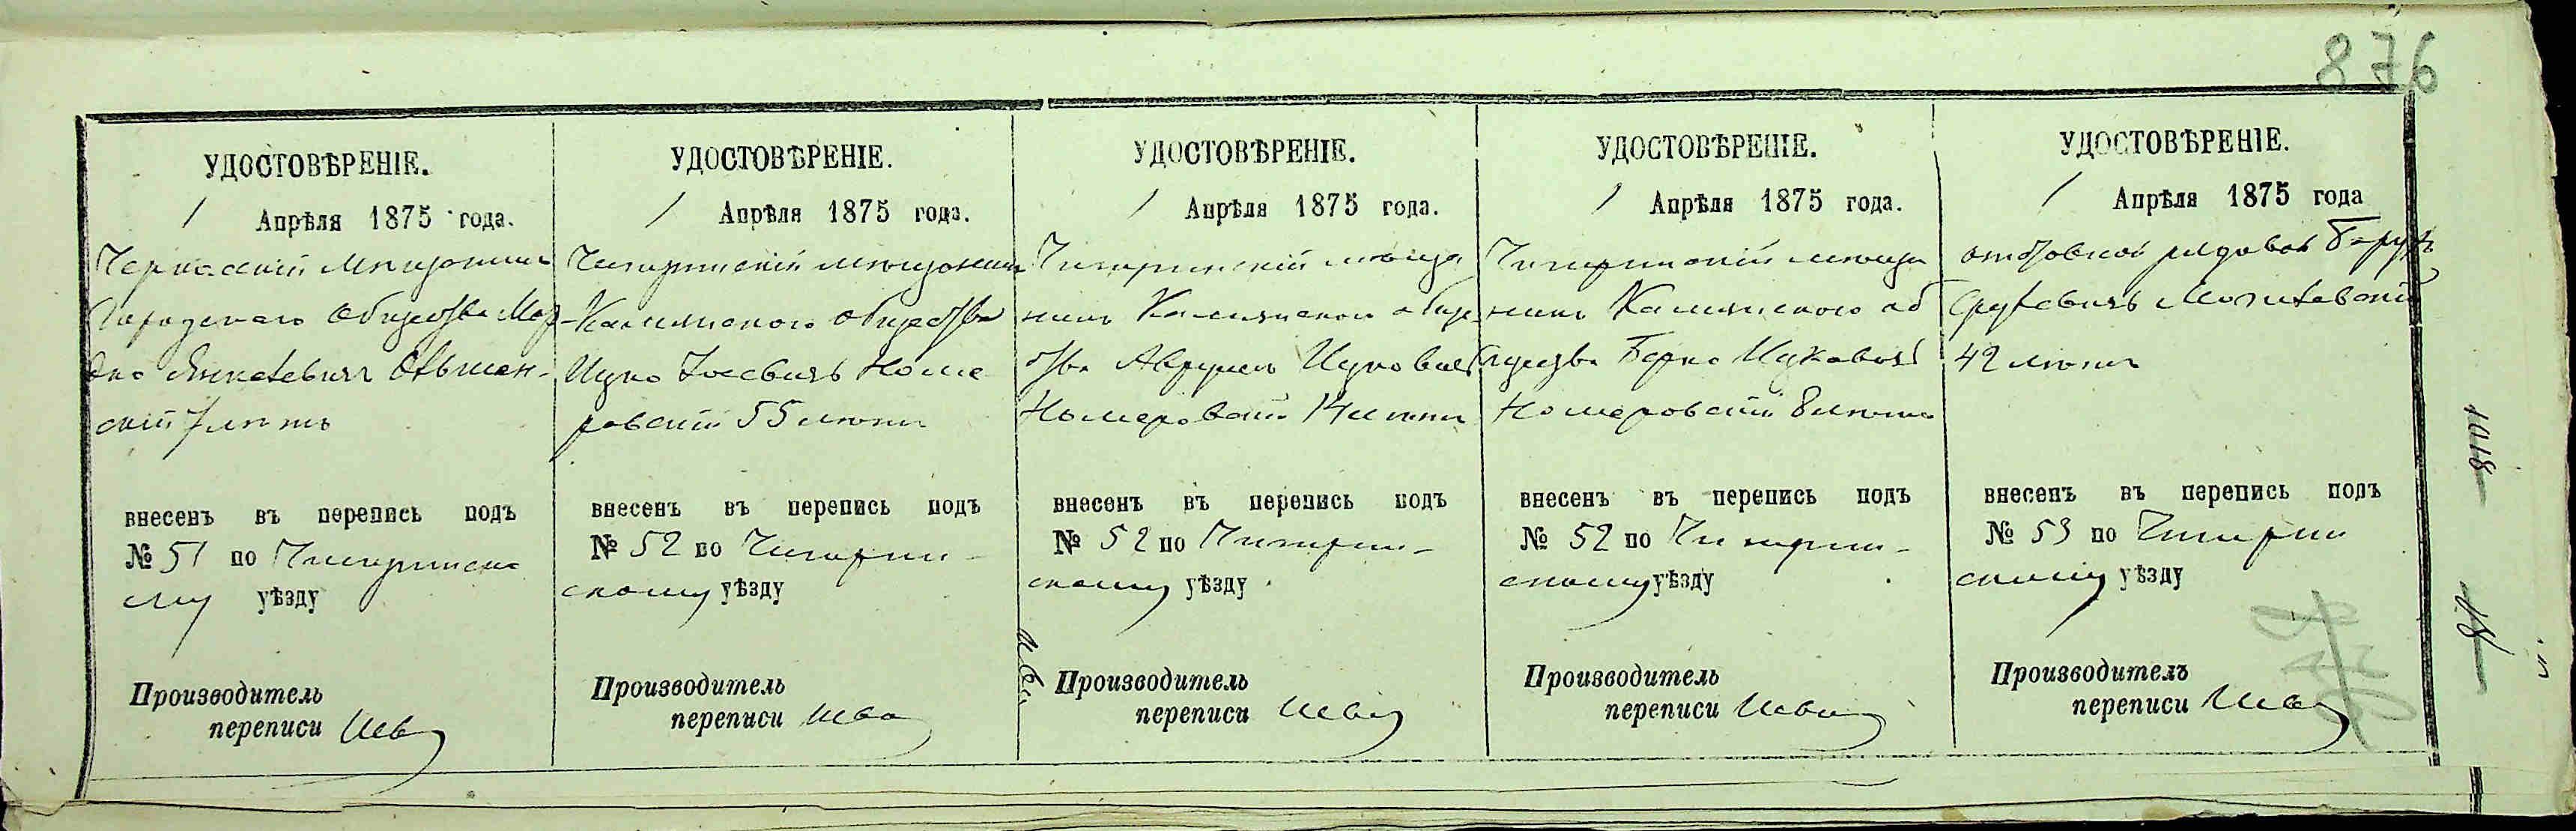 876
УДОСТОВѢРЕНІЕ.
1 Апрѣля 1875 года.
Черкасскій мѣщанинъ
Городского Общества Мор-
дко Янкелевичъ Ольшан-
скій 7 лѣтъ
внесенъ въ перепись подъ
№ 51 по Чигиринско
му уѣзду
Производитель
переписи
УДОСТОВѢРЕНІЕ.
1 Апрѣля 1875 года.
Чигиринскій мѣщанинъ
Каменского общества
Ицко Іосевичъ Номе
ровскій 55 лѣтъ
внесенъ въ перепись подъ
№ 52 по Чигирин-
скому уѣзду
Производитель
переписи
УДОСТОВѢРЕНІЕ.
1 Апрѣля 1875 года.
Чигиринскій мѣща
нинъ Каменского обще
ства Аврумъ Ицковичъ
Номеровскій 14 лѣтъ
внесенъ въ перепись подъ
№ 52 по Чигирин-
скому уѣзду
Производитель
переписи
УДОСТОВѢРЕНІЕ.
1 Апрѣля 1875 года.
Чигиринскій мѣща
нинъ Каменского об
щества Берко Ицковичъ
Номеровскій 8 лѣтъ
внесенъ въ перепись подъ
№ 52 по Чигирин-
скому уѣзду
Производитель
переписи
УДОСТОВѢРЕНІЕ.
1 Апрѣля 1875 года
отставной рядовой Барухъ
Срулевичъ Могилевскій
42 лѣтъ
внесенъ въ перепись подъ
№ 53 по Чигирин
скому уѣзду
Производитель
переписи
1018